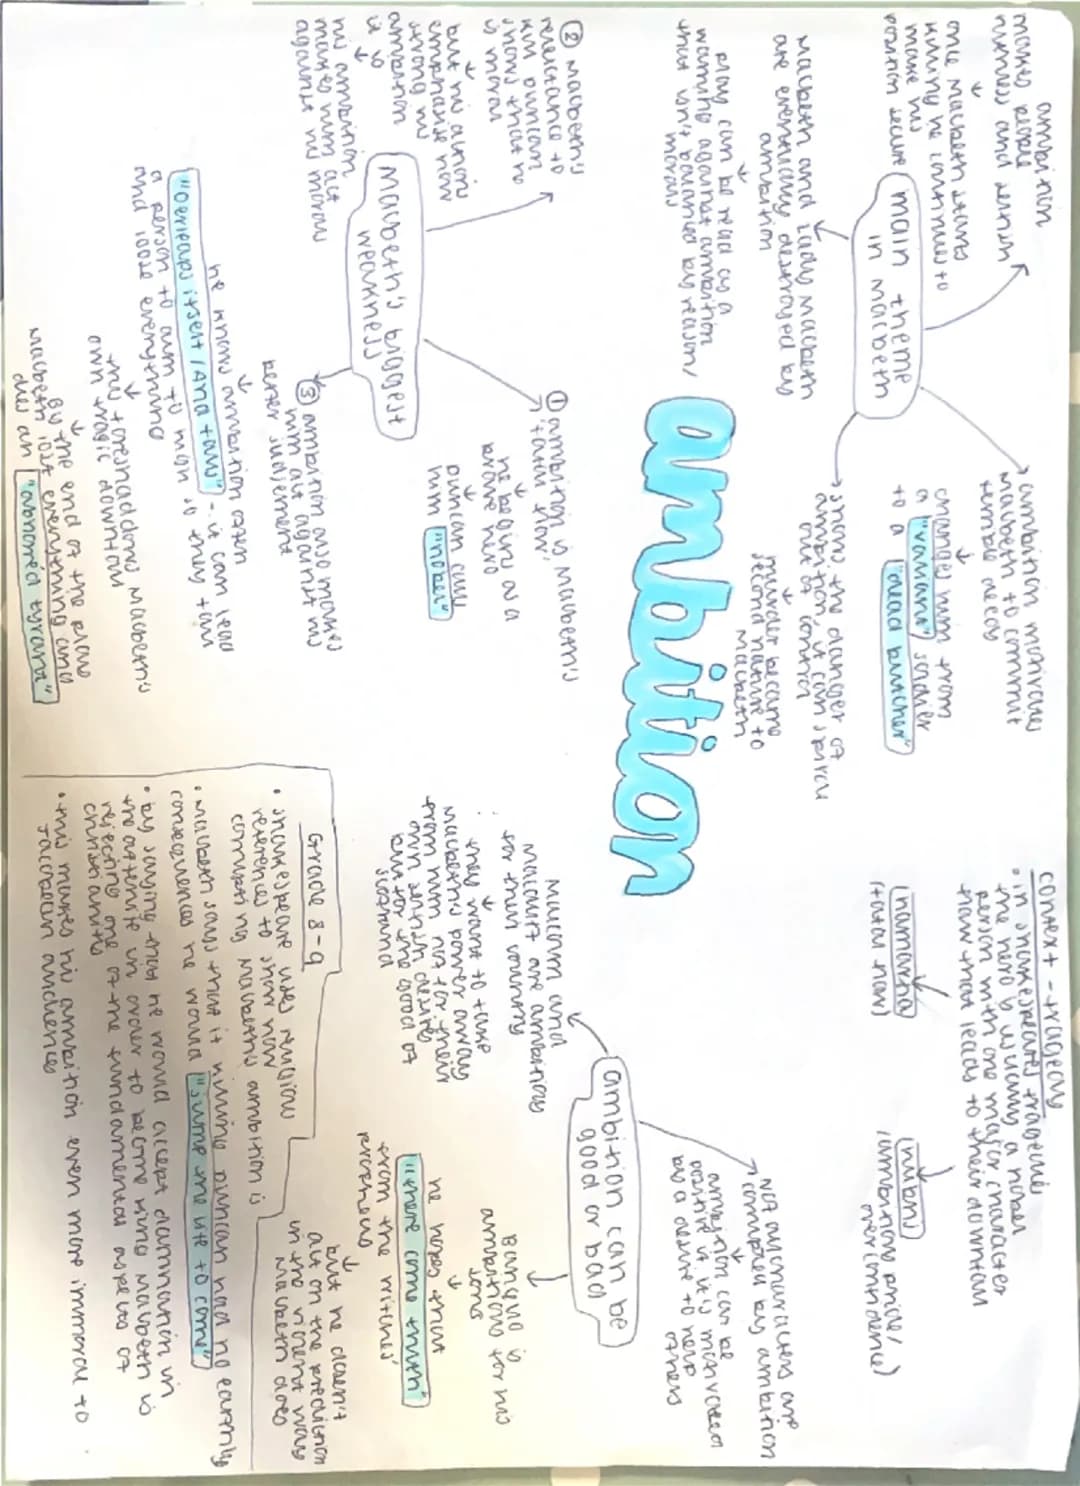 ambition
main theme
in macbeth
ambition
makes people
ruthless and selfish
once Macbeth starts
killing he continues to
make his
position secure
Macbeth and Lady Macbeth
are eventually destroyed by
ambition
play can be read as a
warning against ambition
that isn't balanced by reason/
morals
ambition motivates
Macbeth to commit
terrible deeds
changes him from
a "valiant" soldier
to a "dead butcher"
shows the danger of
ambition, it can spiral
out of control
murder became
second nature to
Macbeth
context - tragedy
• in shakespeares tragedies
the hero is usually a nobel
person with one major character
flaw that leads to their downfall
hamartia
(fatal flaw)
hubris
(ambition, pride/
overconfidence)
Macbeth's biggest
weakness
① ambition is Macbeth's
'fatal flaw'
he begins as a
brave hero
duncan calls
him "nobel"
② Macbeth's
reluctance to
kill duncan
shows that he
is moral
but his actions
emphasise how
strong his
ambition
is
his ambition
makes him act
against his morals
③ ambition also makes
him act against his
better judgement
he knows ambition often
"Oerleaps itself / And falls" - it can lead
a person to aim to high so they fall
and lose everything
this foreshadows Macbeth's
own tragic downfall
By the end of the play
Macbeth lost everything and
dies an "abhorred tyrant"
ambition can be
good or bad
Not all characters are
corrupted by ambition
ambition can be
positive if it is motivated
by a desire to help
others
Malcolm and
Macduff are ambitious
for their country
they want to take
Macbeths power away
from him not for their
own selfish desires
but for the good of
scotland
Banquo is
ambitious for his
sons
he hopes that
"there come truth"
from the witches'
prethews
but he doesn't
act on the prediction
in the violent way
Macbeth does
Grade 8-9
• shakespeare uses religious
references to show how
corrupting Macbeths ambition is
• Macbeth says that if killing duncan had no earthly
consequences he would "jump the life to come"
• by saying that he would accept damnation in
the afterlife in order to become king Macbeth is
rejecting one of the fundamental aspects of
christianity
• this makes his ambition even more immoral to
Jacobean audiences